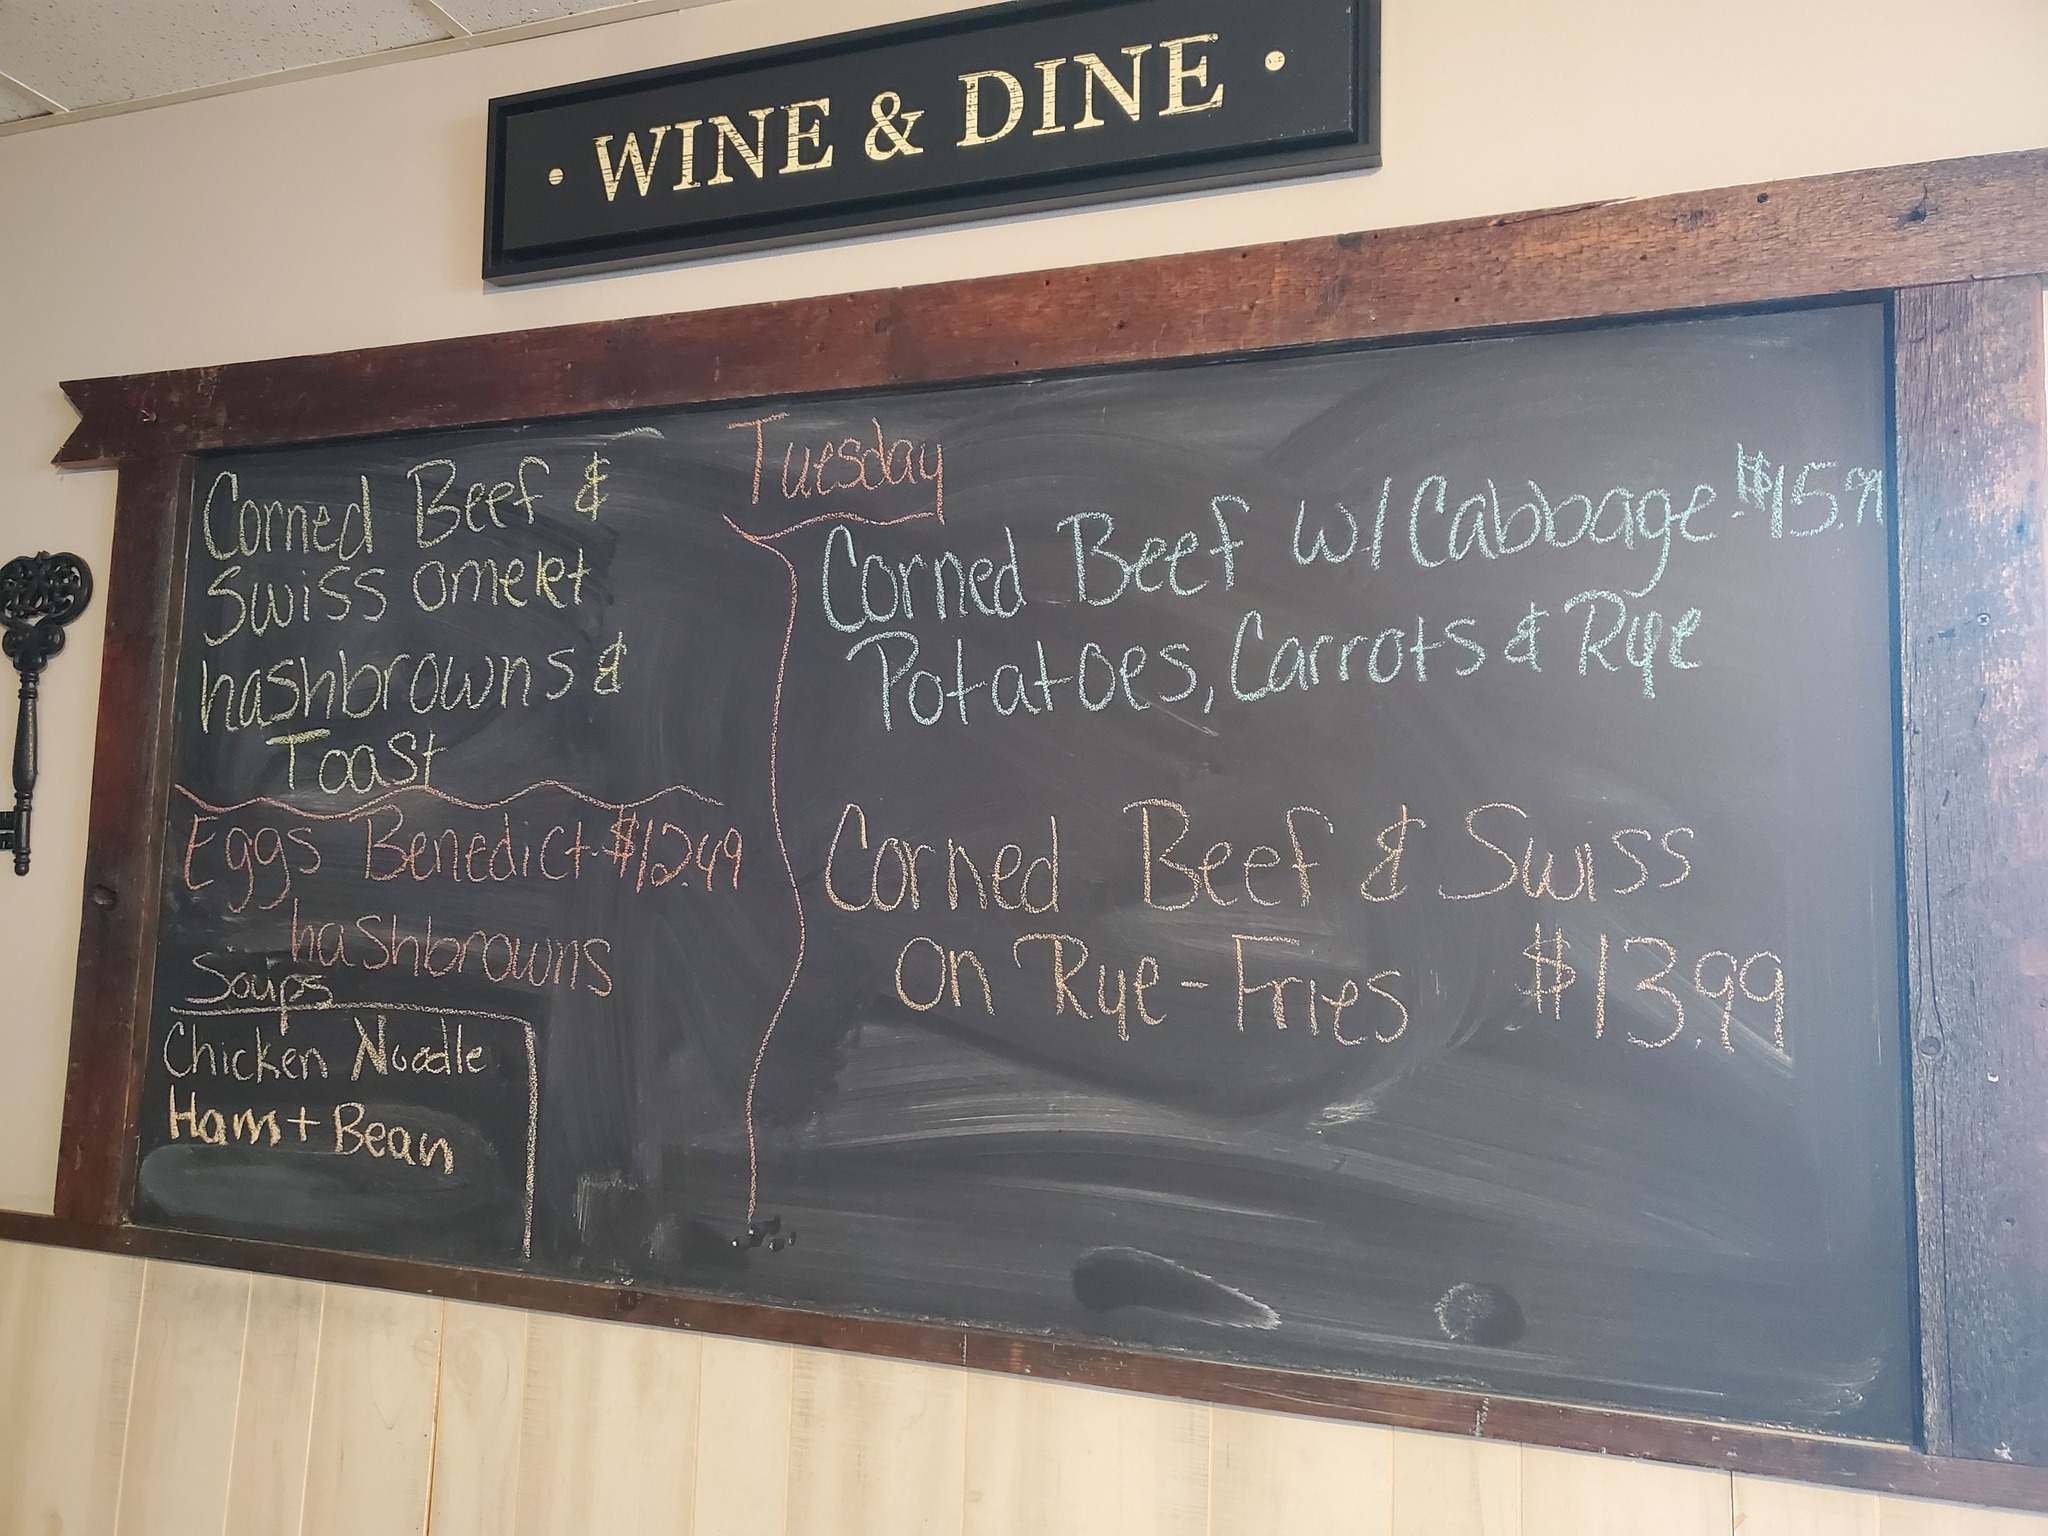 • WINE & DINE •
Tuesday
Corned Beef &
Swiss omelet
hashbrowns &
Toast
Eggs Benedict $12.49
hashbrowns
Soups
Chicken Noodle
Ham + Bean
Corned Beef w/ Cabbage $15.99
Potatoes, Carrots & Rye
Corned Beef & Swiss
on Rye - Fries $13.99